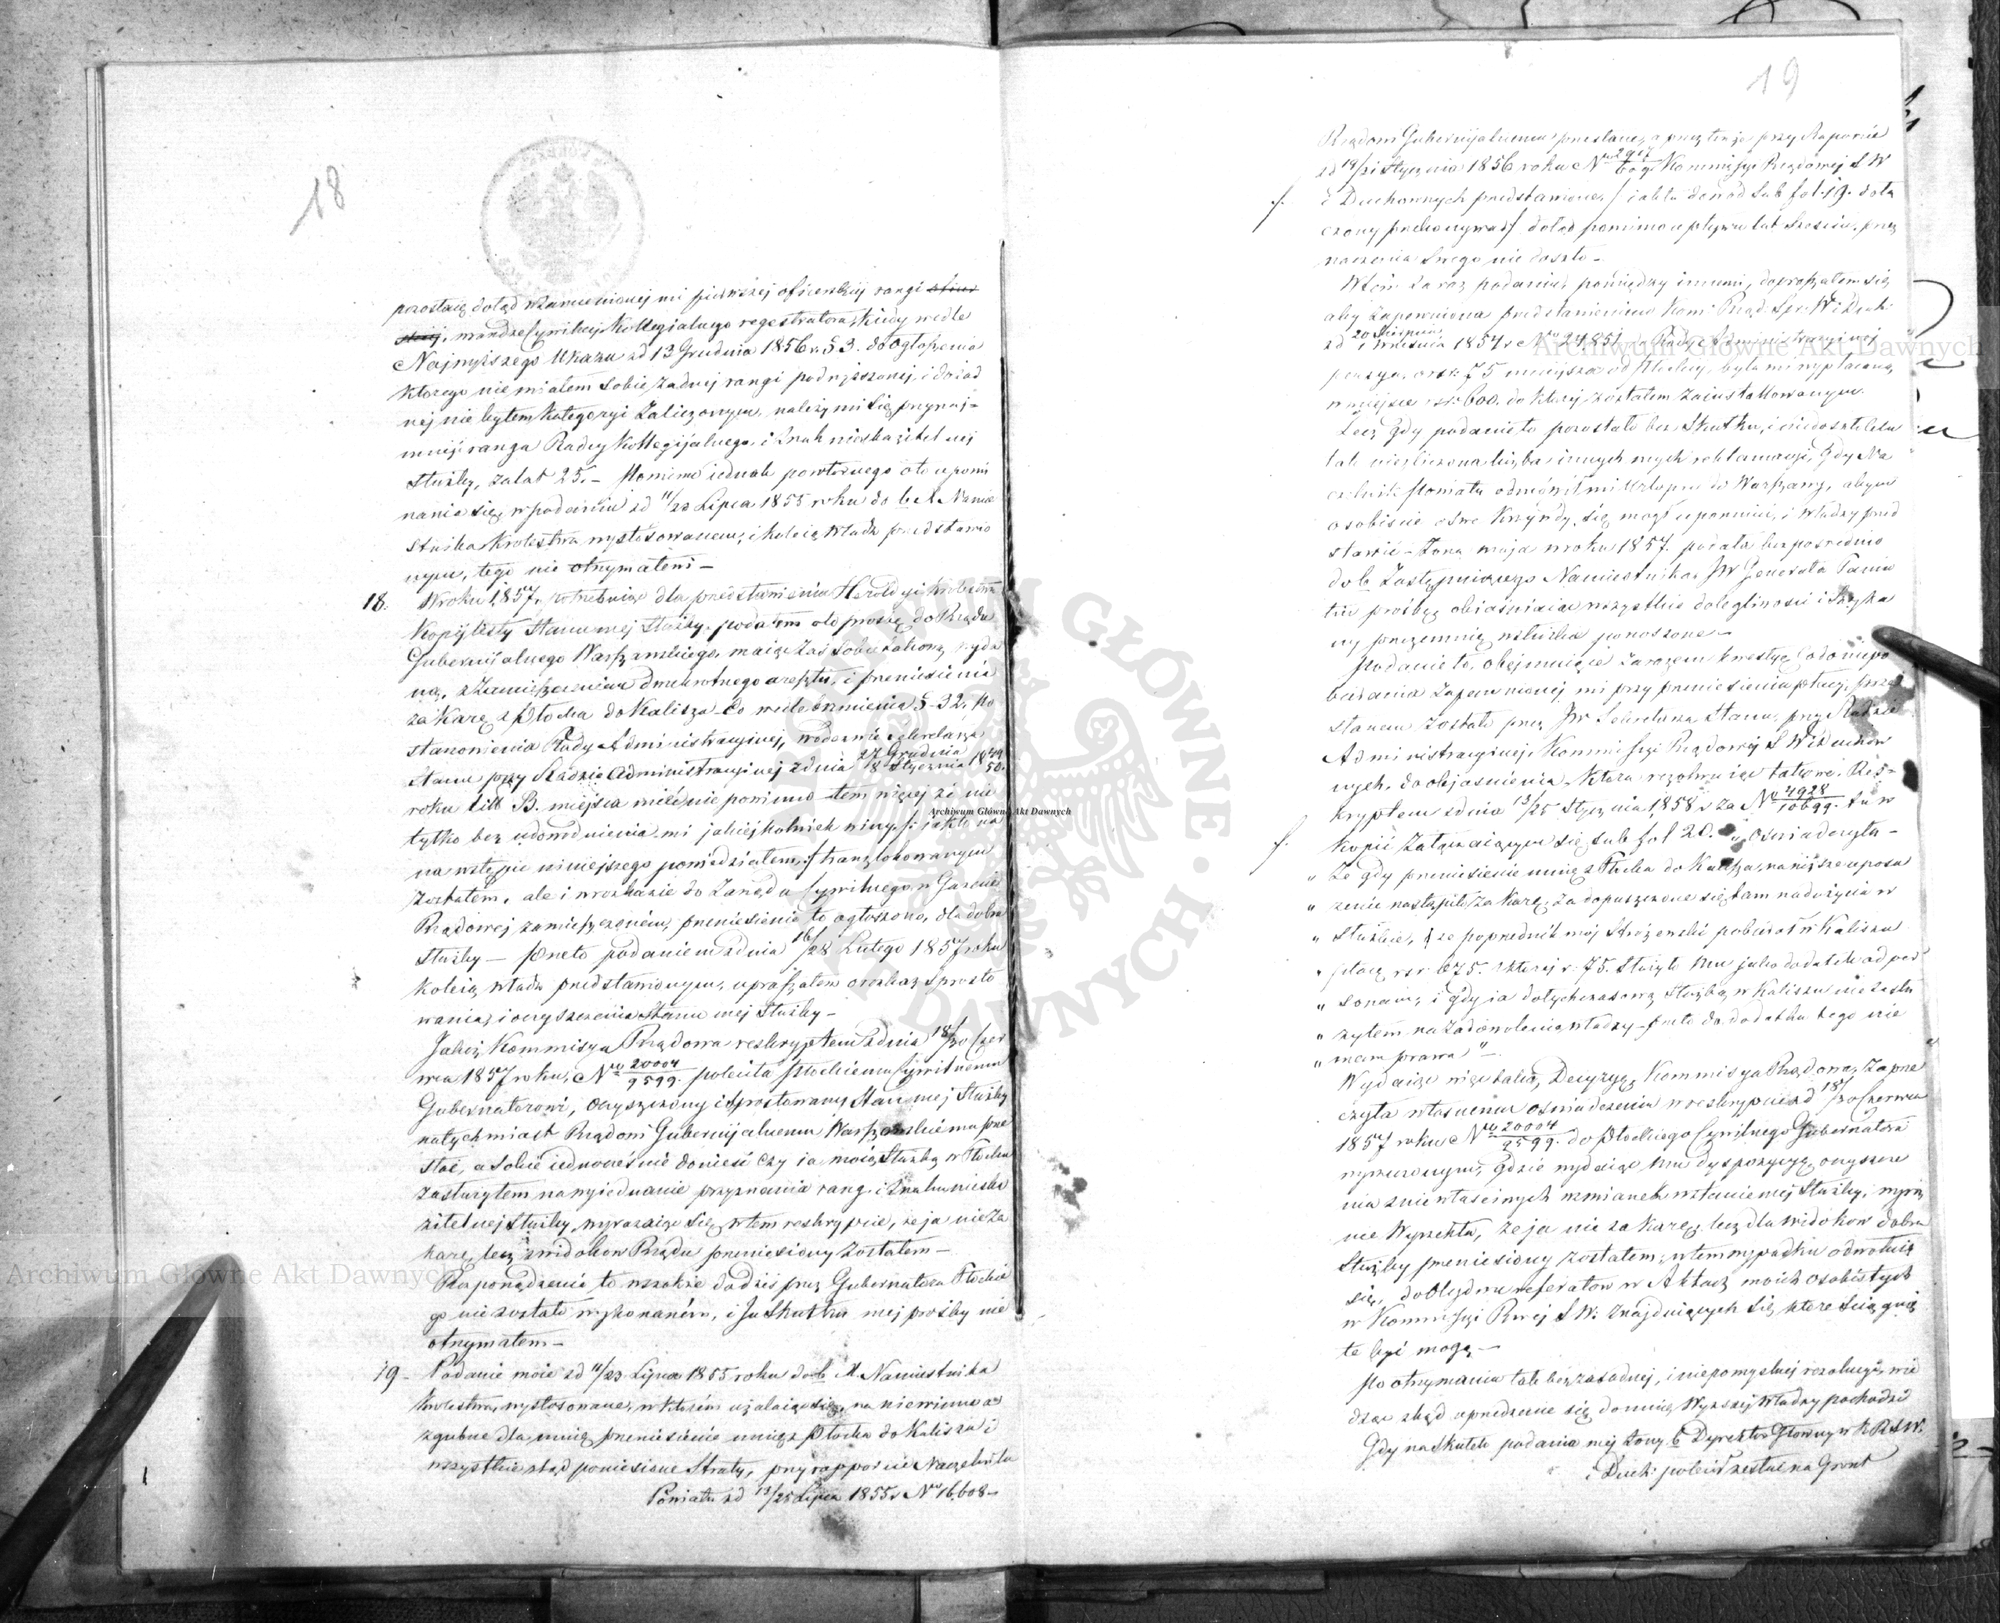 18
pozostaię dotąd w zamienionej mi pierwszej oficerskiej rangi
w randze Cywilnej Kollegialnego regestratora, kiedy wedle
Najwyższego Ukazu zd 13 Grudnia 1856 r. § 3. do ogłoszenia
którego nie miałem sobie żadnej rangi podwyższonej, i do żad
nej nie byłem Kategoryi zaliczonym, należy mi się przynaj-
mniej ranga Radcy Kollegijalnego, i Znak nieskazitelnej
służby, za lat 25. – Pomimo iednak powtórnego o to upomi
nania się, w podaniu zd 11/23 Lipca 1855 roku do b. X. Namie
stnika Królestwa wystosowanem, i koleią Władz przedstawio
nym, tego nie otrzymałem –
18. W roku 1857. potrzebuiąc dla przedstawienia Heroldyi Królestwa
Kopij listy Stanu mej Służby, podałem o to prośbę do Rządu
Gubernijalnego Warszawskiego, maiąc zaś sobie takową wyda
ną, z zamieszczeniem dwukrotnego aresztu, i przeniesienia
za karę z Płocka do Kalisza – co wedle brzmienia § 32. Po
stanowienia Rady Administracyjnej, w odezwie Sekretarza
Stanu przy Radzie Administracyjnej z dnia 27 Grudnia/8 Stycznia 1849/50.
roku litt B. miejsca mieć nie powinno tem więcej że nie
tylko bez udowodnienia mi jakiejkolwiek winy, /: jak to na
na wstępie niniejszego powiedziałem :/ tranzlokowanym
zostałem, ale i w rozkazie do Zarządu Cywilnego w Gazecie
Rządowej zamieszczonem, przeniesienie to ogłoszono, dla dobra
służby – Przeto podaniem z dnia 16/28 Lutego 1857 roku
koleią władz przedstawionym, upraszałem o rozkaz sprosto
wania, i oczyszczenia Stanu mej Służby –
Jakoż Kommissya Rządowa reskryptem z dnia 18/30 Czer
wca 1857 roku, No 20004/9599. poleciła Płockiemu Cywilnemu
Gubernatorowi, oczyszczony i sprostowany Stan mej Służby
natychmiast Rządowi Gubernijalnemu Warszawskiemu prze
słać, a sobie iednocześnie donieść czy ia moią służbą w Płocku
zasłużyłem na wyiednanie przyznania rangi i Znaku nieska
zitelnej Służby, wyrażaiąc się w tem reskrypcie, że ja nie za
karę, lecz z widoków Rządu przeniesiony zostałem –
Rozporządzenie to wszakże do dziś przez Gubernatora Płockie
go nie zostało wykonanem, i ja skutku mej prośby nie
otrzymałem –
19 – Podanie moie zd 11/23 Lipca 1855 roku do b. X. Namiestnika
Królestwa, wystosowane, w którém użalaiąc się, na niewinne a
zgubne dla mnię przeniesienie mnię z Płocka do Kalisza i
wszystkie ztąd poniesione Straty, przy rapporcie Naczelnika
Powiatu zd 13/25 Lipca 1855 r No 16,608 –
19
Rządowi Gubernijalnemu przesłane, a przez tenże przy Raporcie
zd 19/31 Stycznia 1856 roku No Kommissyi Rządowej S W
i Duchownych przedstawione, /: iak to dowód sub fol. 19. dołą
czony przekonywa :/ dotąd pomimo upływu lat sześciu, prze
znaczenia swego nie doszło –
W tém zaraz podaniu, pomiędzy innemi, dopraszałem się
aby zapewniona przedstawieniem Kom: Rząd. Spr: W. i Duch:
zd 20 Sierpnia/1 Września 1854 r No 24851 Radzie Administracyjnej
pensya, o rsr. 75 mniejsza od Płockiej, była mi wypłacaną
w miejsce rsr. 600. do której zostałem zainstallowanym.
Lecz gdy podanie to pozostało bez skutku, i niedoszło celu
tak niezliczona liczba innych mych reklamacji, Gdy Na
czelnik Powiatu odmówił mi Urlopu do Warszawy, abym
osobiście o swe krzywdy się mógł upomnieć, i władzy przed
stawić – Żona moja w roku 1857. podała bezpośrednio
do b. Zastępuiącego Namiestnika JW Generała Paniu
tin prośbę obiaśniaiąc wszystkie dolegliwości i Szyka
ny przezemnię niesłusznie ponoszone –
Podanie to, obejmuiąc zarazem kwestyę
bierania zapewnionej mi przy przeniesieniu płacy, prze
słanem zostało przez JW Sekretarza Stanu, przy Radzie
Administracyjnej, Kommissyi Rządowej S W i Duchow
nych, do obiaśnienia – która, rozstrzygaiąc takowe, Res-
kryptem z dnia 13/25 Stycznia 1858 r za No 4928/10699. tu w
Kopii załączaiącym się sub fol 20. „oświadczyła –
„ że gdy przeniesienie mnię z Płocka do Kalisza, na niższe uposa
„ żenie nastąpiło za karę, za dopuszczone się tam nadużycia w
„ Służbie, że poprzednik mój Strożewski pobierał w Kaliszu
„ płacę rsr. 675. z której r. 75. Służyło mu jako dodatek od per
„ sonam, i gdy ia dotychczasową służbą w Kaliszu nie zasłu
„ żyłem na zadowolenie władzy – przeto do dodatku tego nie
„ mam prawa” –
Wydaiąc więc taką Decyzyę, Kommissya Rządowa, Zaprze
czyła własnemu oświadczeniu w reskrypcie zd 18/30 Czerwca
1857 roku No 20004/9599. do Płockiego Cywilnego Gubernatora
wymierzonym, gdzie wydaiąc mu dyspozycyę oczyszcze
nia z niewłaściwych wzmianek w stanie mej Służby, wyraź
nie wyrzekła, że ja nie za karę, lecz dla widoków dobra
Służby przeniesiony zostałem, w tem wypadku odwołuię
się, do oględzin referatów w Aktach moich osobistych
w Kommissyi Rzwej S W: znajduiących się, które ściągnię
te być mogą –
Po otrzymaniu tak bezzasadnej, i niepomyślnej rezolucyi, wie
dząc zkąd uprzedzenie się do mnię Wyższej Władzy pochodzi
Gdy na skutek podania mej żony b Dyrektor Główny w K R S W.
i Duch: polecił zesłać na Grunt
Archiwum Główne Akt Dawnych
Archiwum Główne Akt Dawnych
Archiwum Główne Akt Dawnych